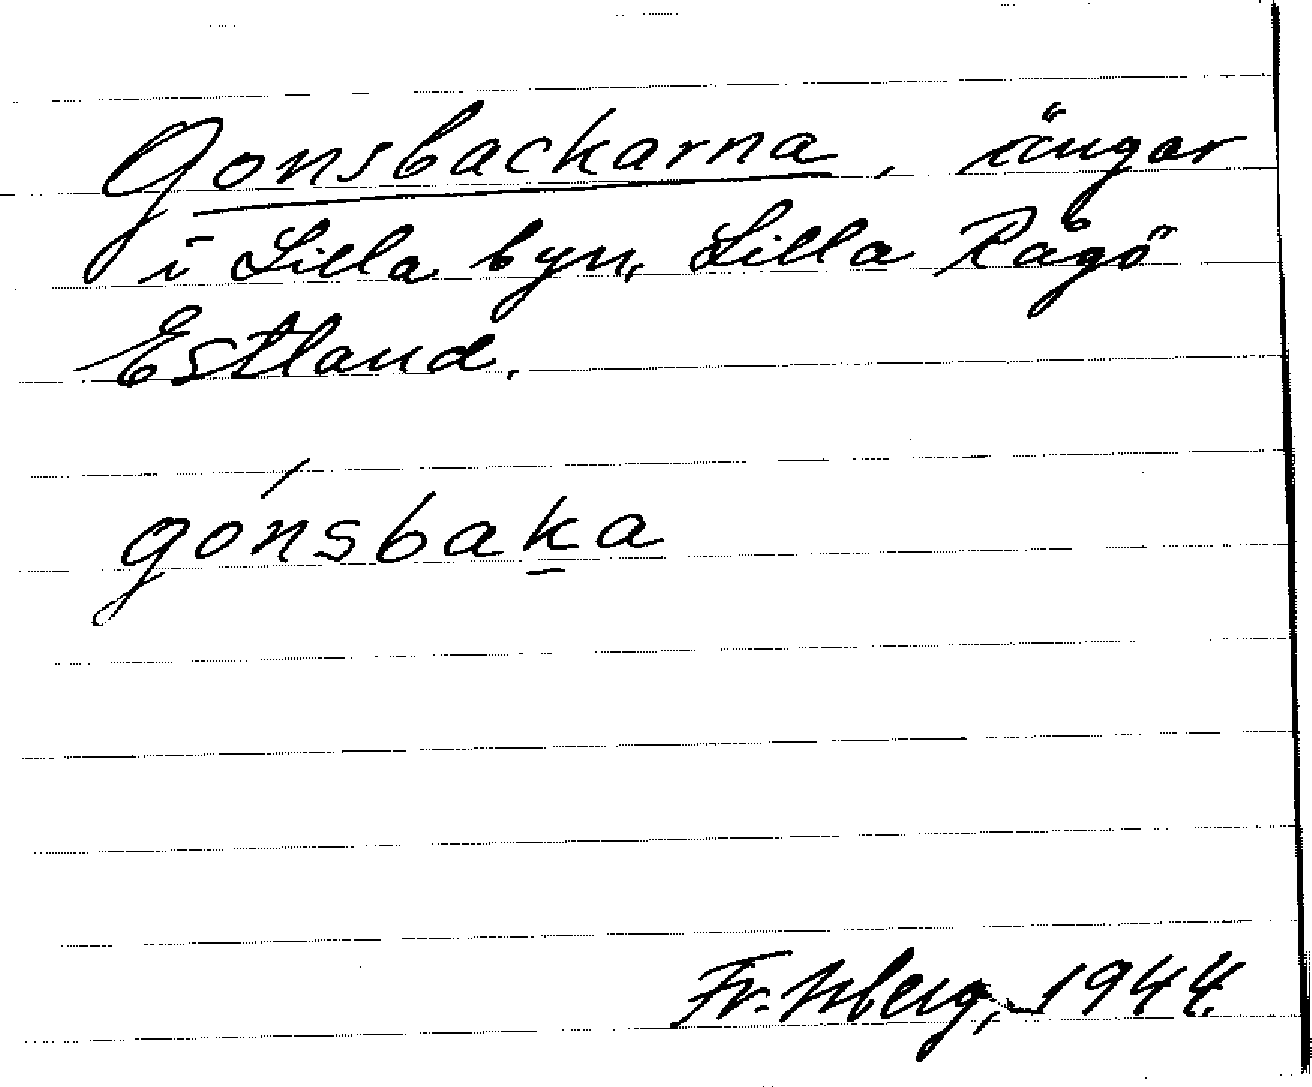 Gonsbackarna, ängar
i Lilla byn, Lilla Rågö
Estland.
gónsbaka
Fr. Isberg, 1944.